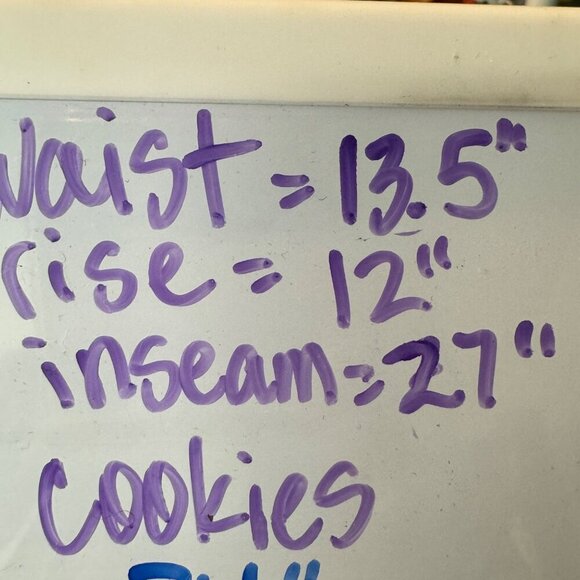 waist = 13.5"
rise = 12"
inseam = 27"
cookies